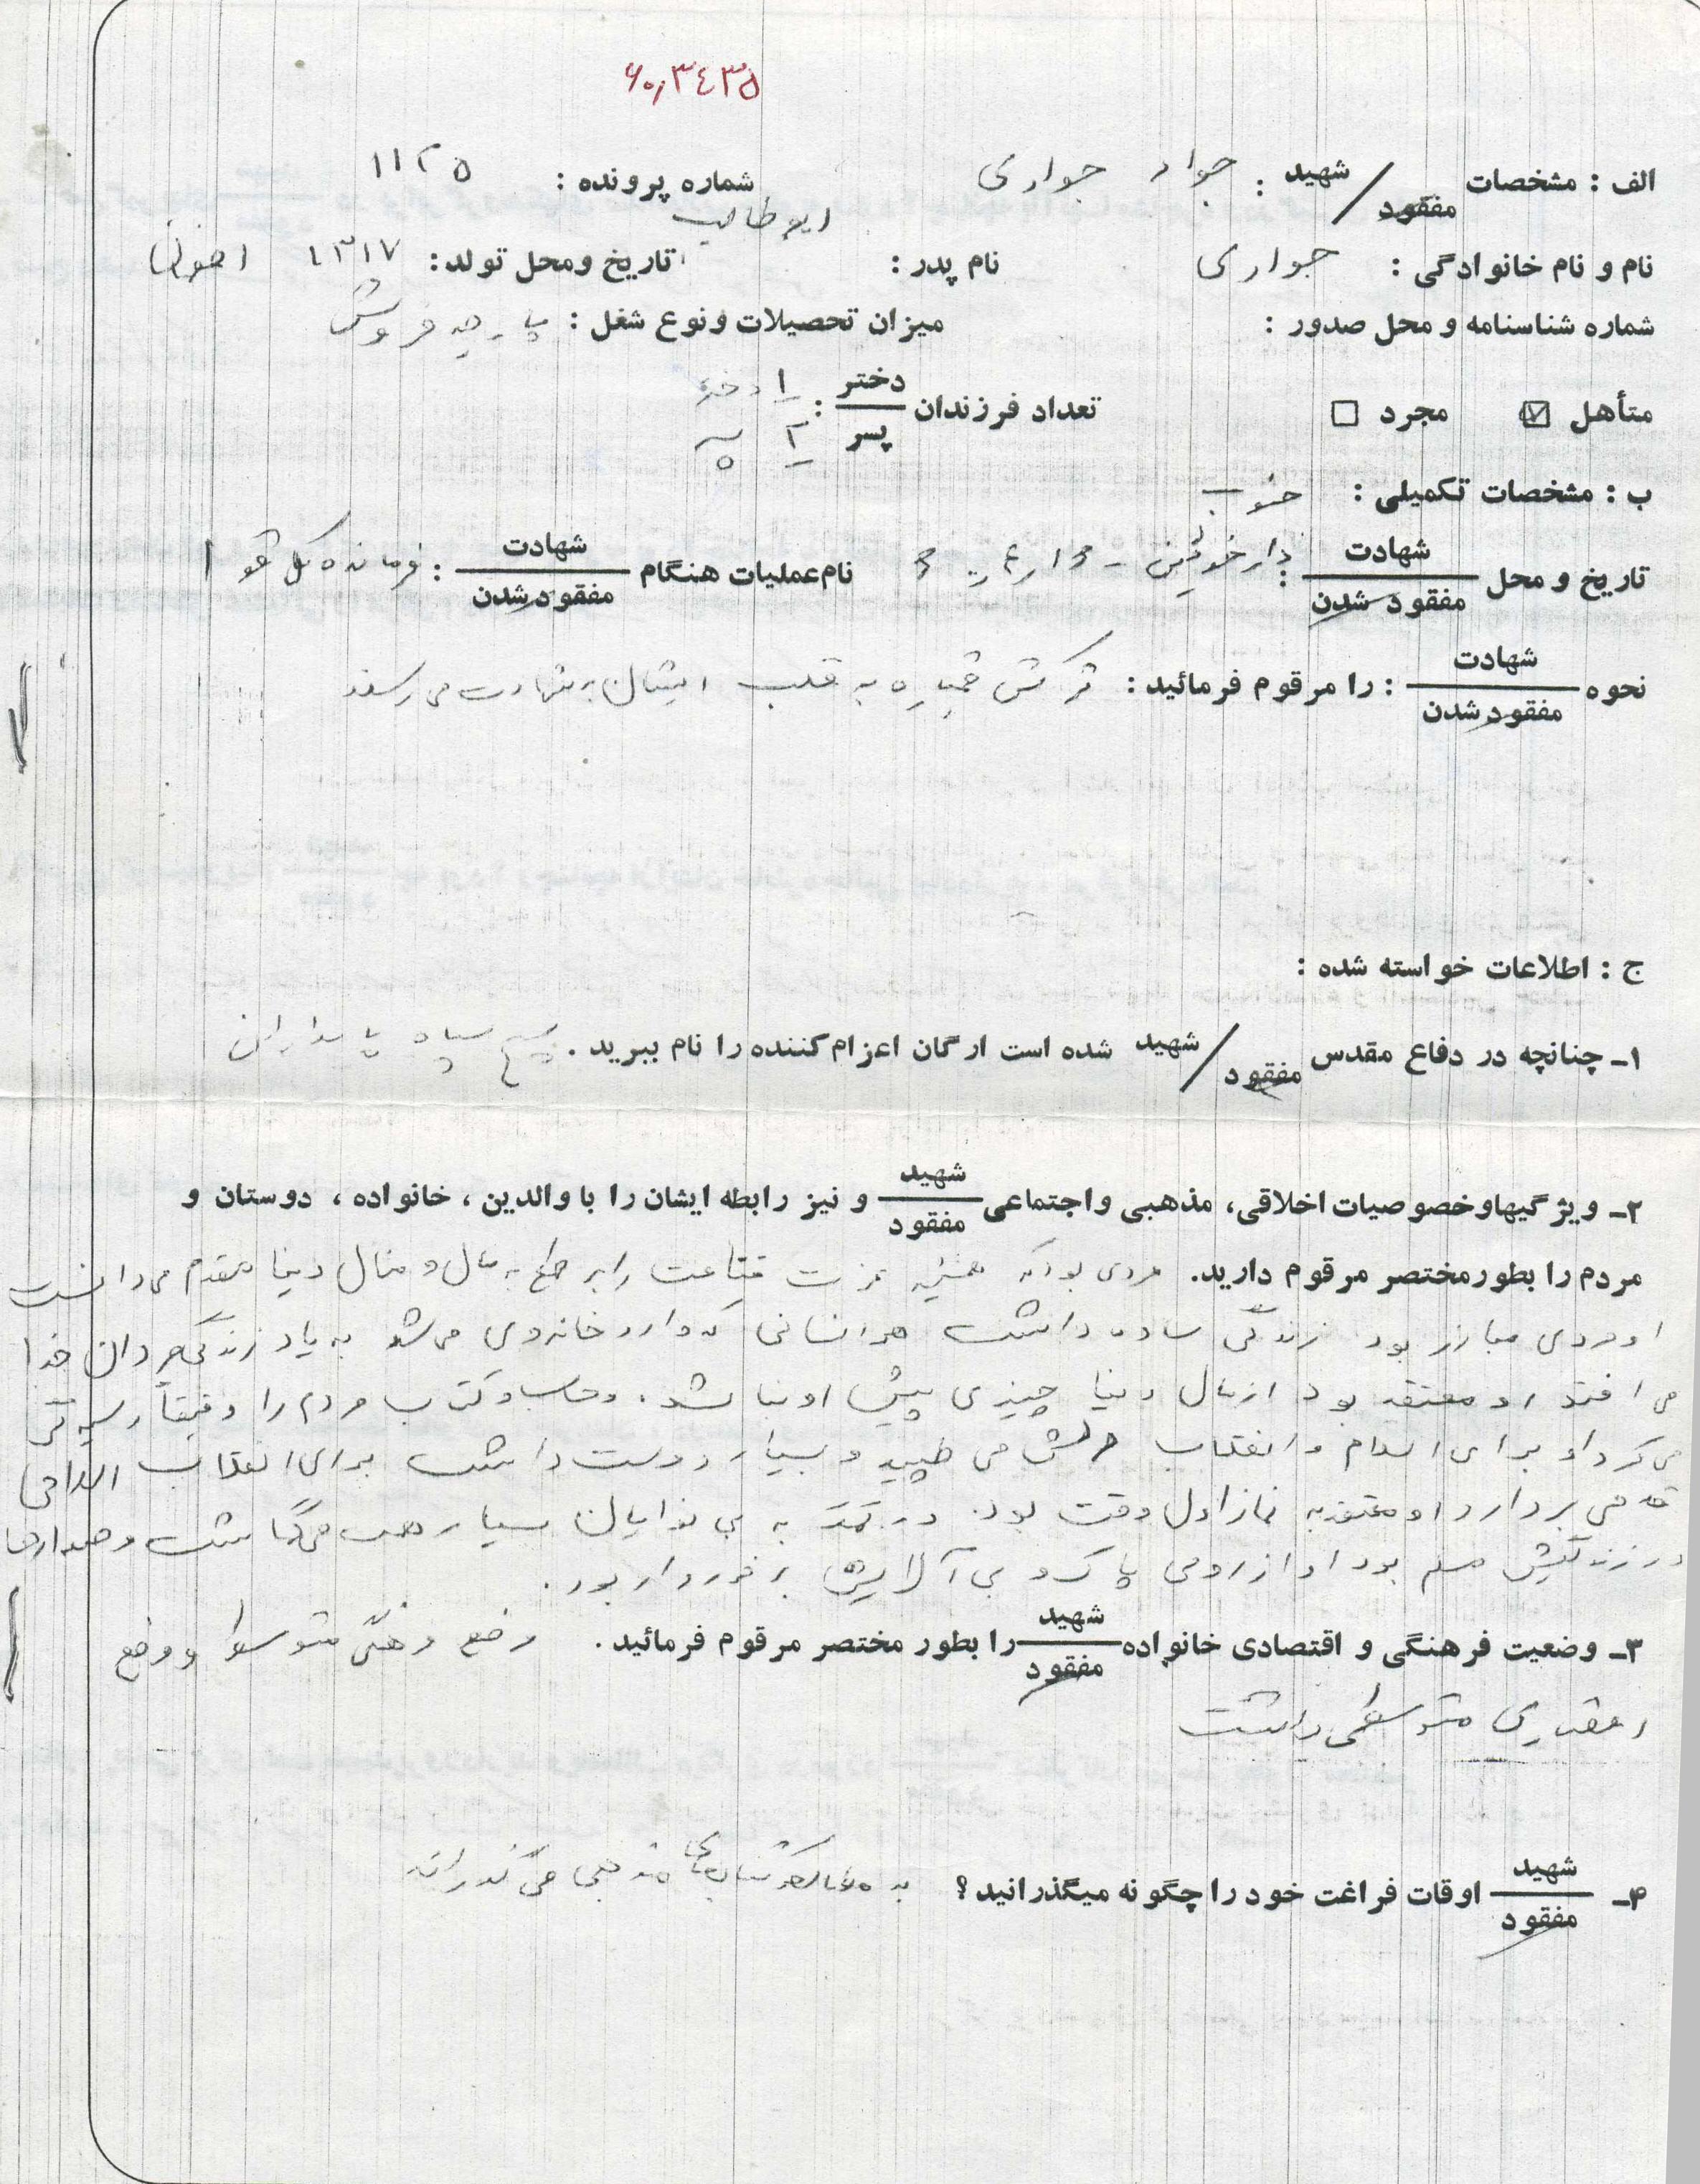 ۶۰٫۳۴۳۵
الف : مشخصات شهید / مفقود : جواد جواری شماره پرونده : ۱۱۲۵
نام و نام خانوادگی : جواری نام پدر : ابوطالب تاریخ ومحل تولد : ۱۳۱۷ اصفهان
شماره شناسنامه و محل صدور : میزان تحصیلات ونوع شغل : پارچه فروش
متأهل ☑ مجرد ☐ تعداد فرزندان دختر / پسر : ۱ دختر ۲ پسر
ب : مشخصات تکمیلی : جنوب
تاریخ و محل شهادت / مفقود شدن : دارخوئین نام عملیات هنگام شهادت / مفقود شدن : فرمانده کل قوا
نحوه شهادت / مفقود شدن : را مرقوم فرمائید : ترکش خمپاره به قلب ایشان به شهادت می رسند
ج : اطلاعات خواسته شده :
۱ـ چنانچه در دفاع مقدس شهید / مفقود شده است ارگان اعزام کننده را نام ببرید . بسیج سپاه پاسداران
۲ـ ویژگیهاوخصوصیات اخلاقی، مذهبی واجتماعی شهید / مفقود و نیز رابطه ایشان را با والدین ، خانواده ، دوستان و
مردم را بطور مختصر مرقوم دارید. مردی بود که همیشه عزت قناعت را بر طمع به مال و منال دنیا مقدم می دانست
او مردی مبارز بود زندگی ساده داشت هر انسانی که وارد خانه وی می شد به یاد زندگی مردان خدا
می افتد او معتقد بود از مال دنیا چیزی پیش او نباشد. و حساب و کتاب مردم را دقیقاً رسیدگی
می کرد او برای اسلام و انقلاب دلش می طپید و بسیار دوست داشت برای انقلاب اسلامی
قدمی بردارد او معتقد به نماز اول وقت بود. در کمک به بی نوایان بسیار همت می گماشت و
در زندگیش مسلم بود او از روحی پاک و بی آلایش برخوردار بود.
۳ـ وضعیت فرهنگی و اقتصادی خانواده شهید / مفقود را بطور مختصر مرقوم فرمائید . وضع فرهنگی متوسط و وضع
اقتصادی متوسطی داشت
۴ـ شهید / مفقود اوقات فراغت خود را چگونه میگذرانید ؟ به مطالعه کتابهای مذهبی می گذراند